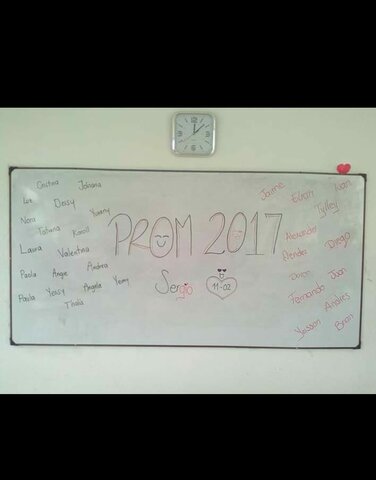 Cristina Johana
Luz Deisy
Nora Yurany
Tatiana Karoll
Laura Valentina
Paola Angie Andrea
Paula Yensy Angela Yeimy
Thalia
PROM 2017
Sergio 11-02
Jaime Ivan
Tyffey
Alexander Diego
Jhon
Fernando Andrés
Yeisson Brian